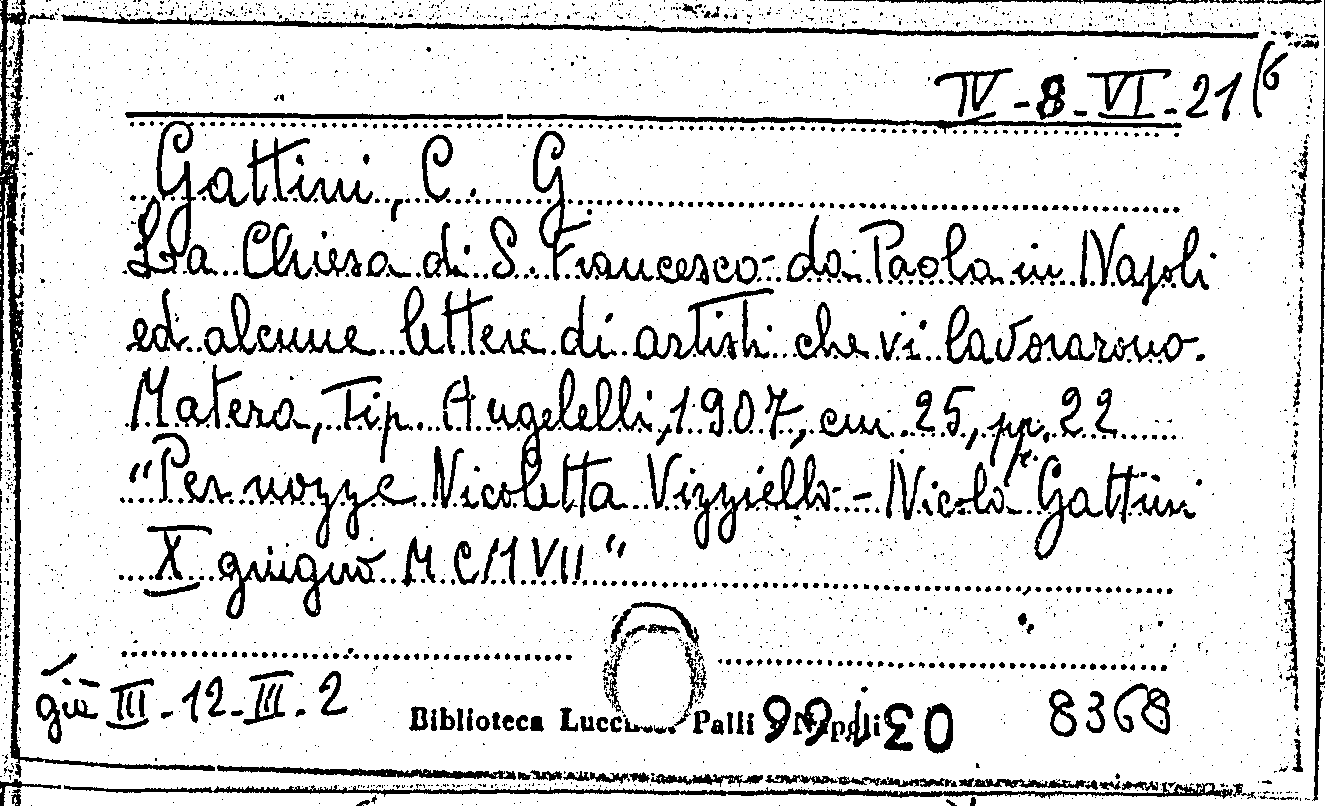 IV-8-VI-21(6
Gattini, C. G.
La Chiesa di S. Francesco da Paola in Napoli
ed alcune lettere di artisti che vi lavorarono.
Matera, Tip. Angelelli, 1907, cm. 25, pp. 22
"Per nozze Nicoletta Vizziello - Nicola Gattini
X giugno MCMVII"
già III-12-III-2
Biblioteca Lucchesi Palli Napoli 8368